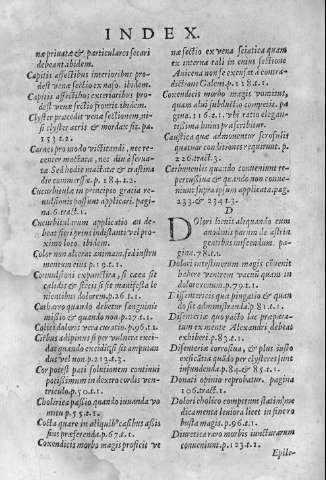 INDEX.
næ priuatæ & particulares secari
debeant. ibidem.
Capitis affectibus interioribus prodest
vena sectio ex naso. ibidem.
Capitis affectibus exterioribus prodest
venæ sectio frontis. ibidem.
Clyster præcedit venæ sectionem, nisi
si clyster acris & mordax sit. pa.
153.t.2.
Carnes pro modo victitandi, nec recenter
mactatæ, nec diu
Sed hodie mactatæ & crastina
die p. 184.t.2.
Cucurbitulæ in principio gracia
possunt applicari. pagina
6.tract.1.
Cucurbitularum applicatio an debeat
fieri primo loco. ibidem.
Color non alicuius animam, sed instrumentum
eius p.19.t.1.
Conuulsioni si causa sit
calida & siccis si sit manifesta
dolorem. p.26.t.1.
Catharro quando debetur sanguinis
missio & quando non. p.27.t.1.
Colici doloris vera curatio. p.96.t.1.
Cirbus adipinus si per vulnera excidat
quando excidit si sit amputandus
vel non. p.213.t.3.
Cor potest pati solutionem continui
potissimum in dextro cordis ventriculo.
p.50.t.1.
Cholerica passio quando iuuanda vomitu
p.55.t.1.
Costa quare in casibus
sius præferenda. p.67.t.1.
Coxendicis morbo magis proficit ve
næ sectio ex vena sciatica quam
ex interna tali in cuius sectione
Auicena non se excusat à contradictrant
Galem. p.118.t.1.
Coxendicis morbo magis vomitus,
quam alui subductio competit. pagina
116.t.1. vbi ratio elegantissima
huius præscribitur.
Caustica quæ admouentur scrofulis
quatuor conditiones requirunt. p.
226.tract.3.
Carbunculis quando conuenient repercussiua
& quando non conueniunt
supra ipsum applicata. pag.
233. & 234.t.3.
D
Dolori lienis aliquando cum
anodinis parum de astringentibus
miscendum. pagina
78.t.1.
Dolori intestinorum magis conuenit
habere ventrem vacuum quam in
p.79.t.1.
Dissenterics quid pinguia & quando
sit administranda. p.81.t.1.
Dissenteria quo pacto lac præparatum
ex mente Alexandri debeat
exhiberi. p.83.t.1.
Disenteria corrosiua, & plus iusto
exsiccatiua quàdo per clysteres sunt
infundenda. p.84. & 85.t.1.
Donati opinio reprobatur. pagina
106.tract.1.
Dolori cholico competunt statim medicamenta
leuiora licet in sincero
p.96.t.1.
Diuretica raro morbis iuncturarum
conueniunt. p.123.t.1.
Epile-